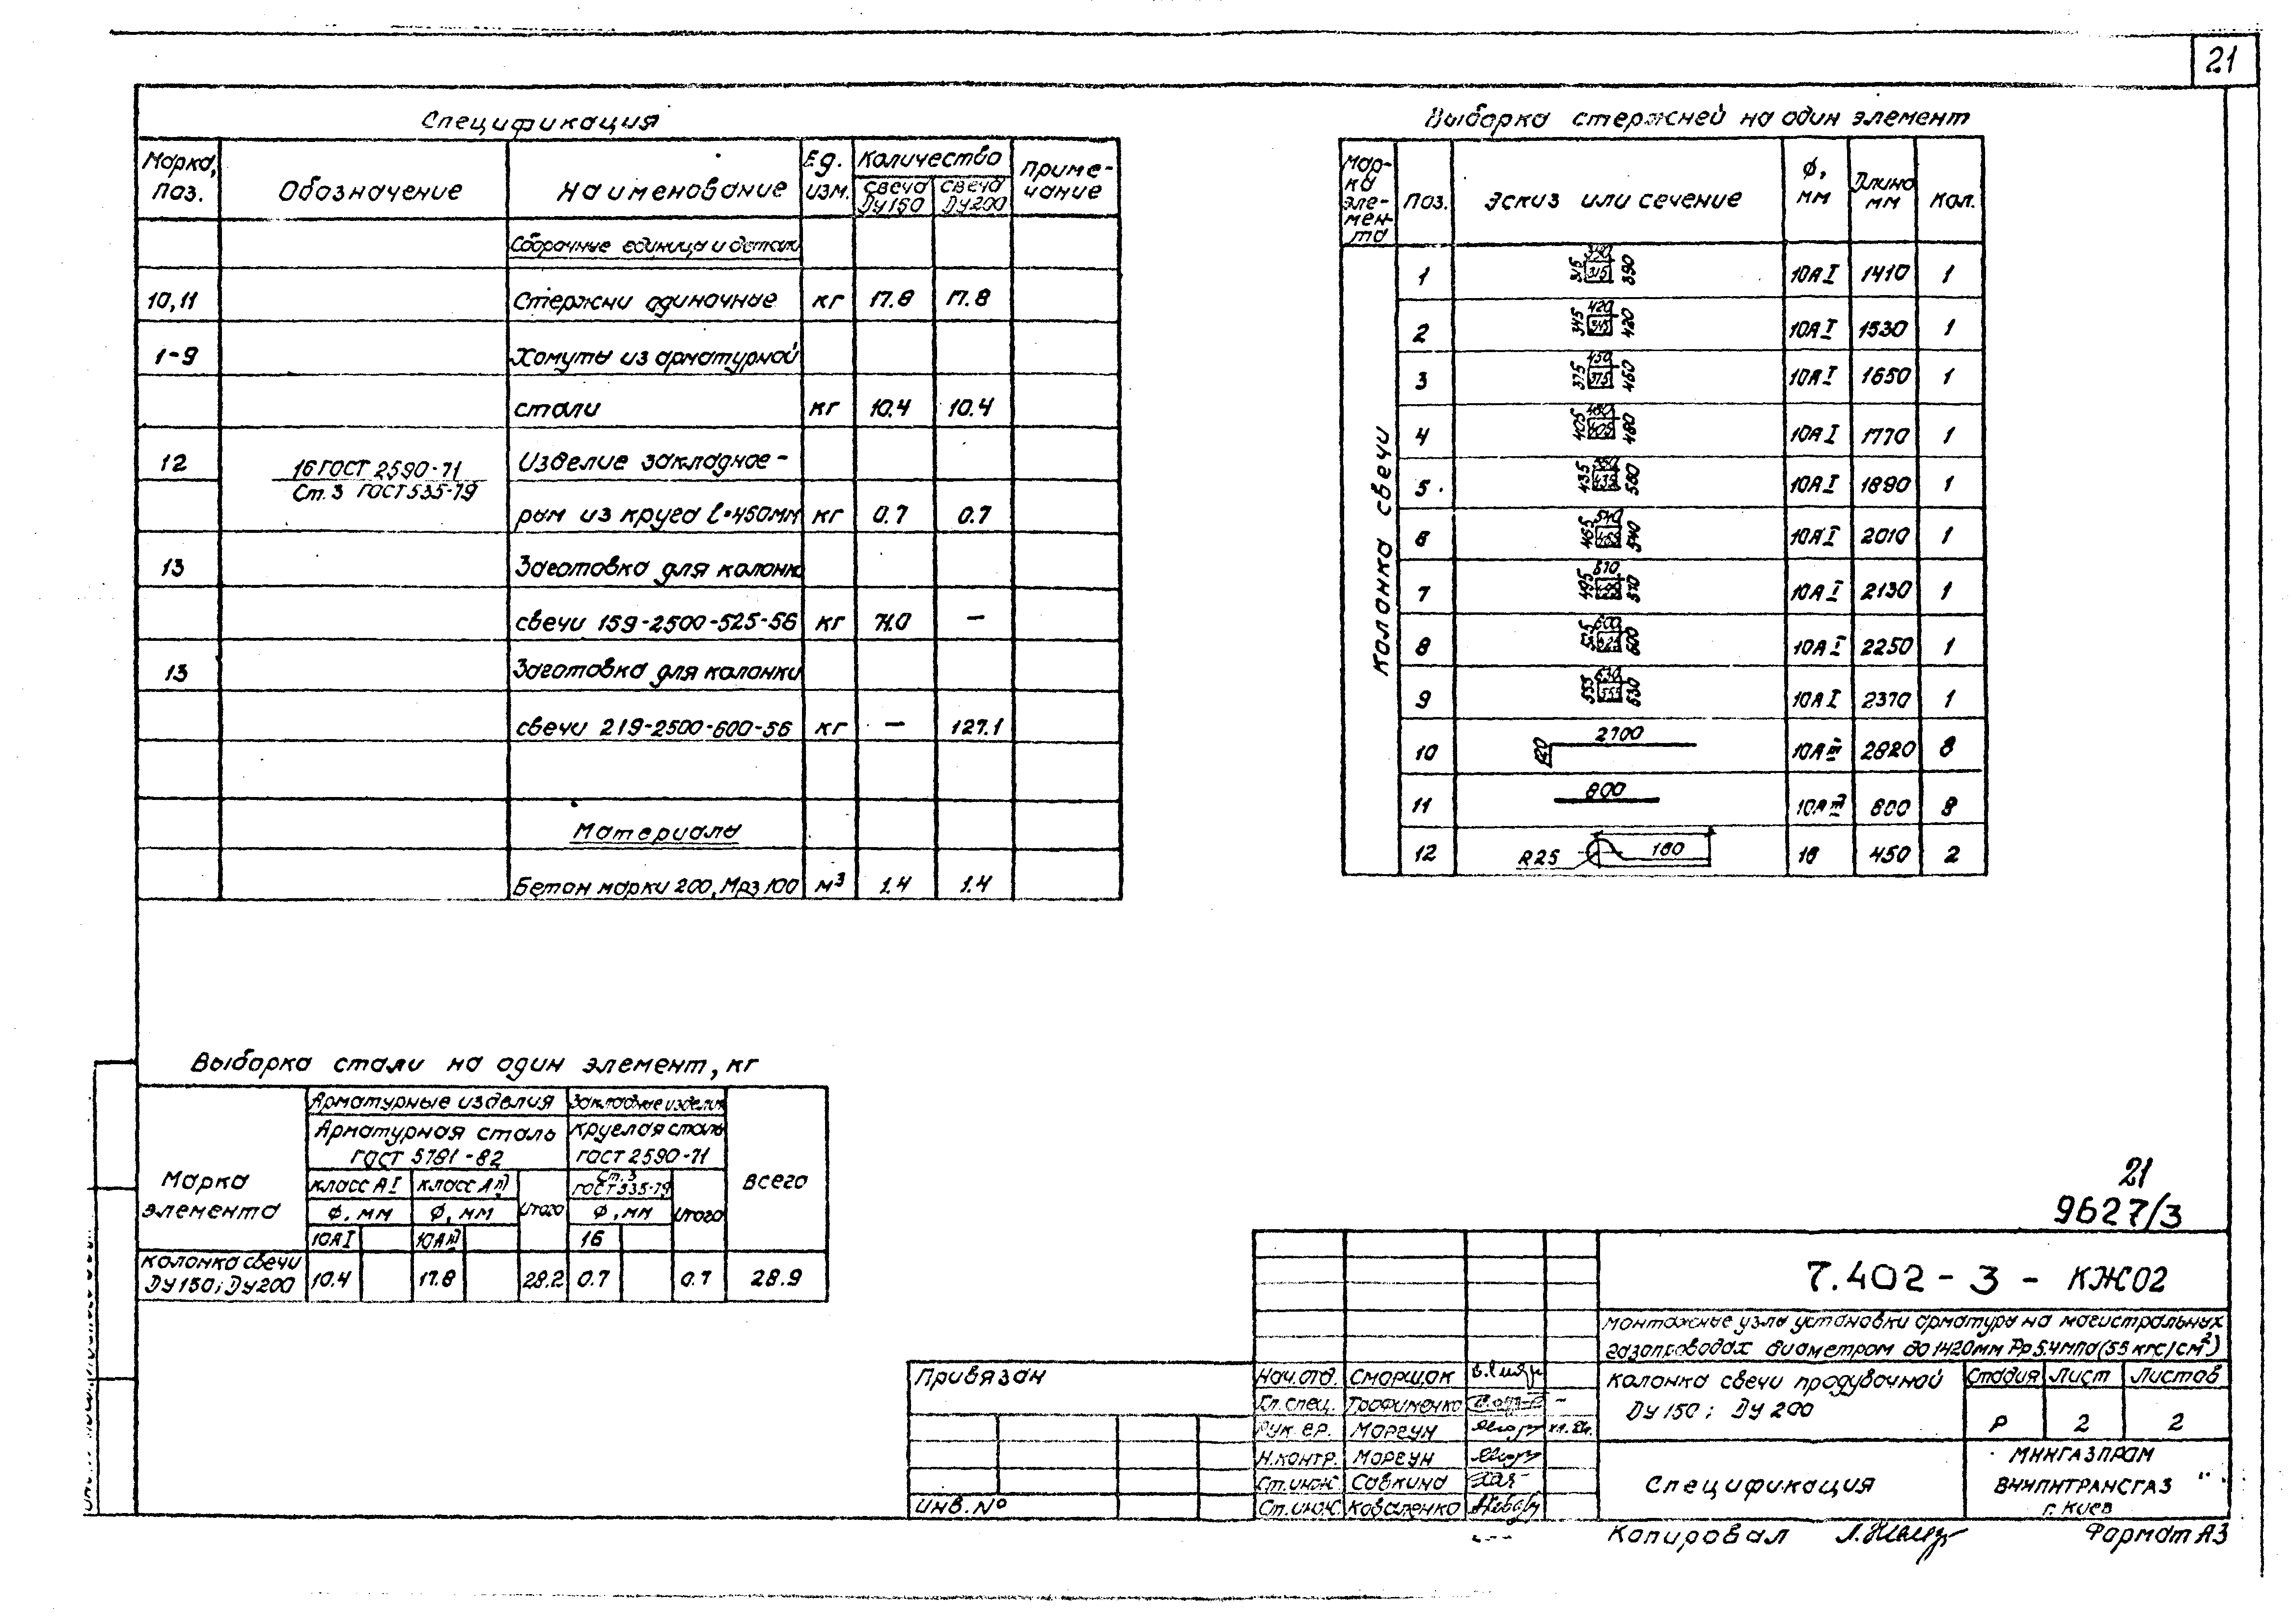 21
Спецификация
Марка, поз. Обозначение Наименование Ед. изм. Количество Примечание
свеча Ду150 свеча Ду200
Сборочные единицы и детали
10,11 Стержни одиночные кг 17.8 17.8
1-9 Хомуты из арматурной
стали кг 10.4 10.4
12 16 ГОСТ 2590-71 Изделие закладное-
Ст.3 ГОСТ 535-79
рым из круга ℓ=450мм кг 0.7 0.7
13 Заготовка для колонки
свечи 159-2500-525-56 кг 71.0 —
13 Заготовка для колонки
свечи 219-2500-600-56 кг — 127.1
Материалы
Бетон марки 200, Мрз 100 м³ 1.4 1.4
Выборка стержней на один элемент
Марка элемента Поз. Эскиз или сечение ϕ, мм Длина мм Кол.
Колонка свечи
1 390 315 315 390 10АI 1410 1
2 420 345 345 420 10АI 1530 1
3 450 375 375 460 10АI 1650 1
4 480 405 405 480 10АI 1770 1
5 435 435 10АI 1890 1
6 540 465 540 10АI 2010 1
7 495 570 10АI 2130 1
8 600 600 10АI 2250 1
9 630 555 555 630 10АI 2370 1
10 2700 120 10АIII 2820 8
11 800 10АIII 800 8
12 R25 160 16 450 2
Выборка стали на один элемент, кг
Марка элемента
Арматурные изделия Закладные изделия Всего
Арматурная сталь ГОСТ 5781-82 Круглая сталь ГОСТ 2590-71
класс АI класс АIII Итого Ст.3 ГОСТ 535-79 Итого
ϕ, мм ϕ, мм ϕ, мм
10АI 10АIII 16
Колонка свечи
Ду150; Ду200 10.4 17.8 28.2 0.7 0.7 28.9
21
9627/3
7.402-3-КЖ02
Монтажные узлы установки арматуры на магистральных
газопроводах диаметром до 1420мм Рр5.4МПа(55 кгс/см²)
Привязан
Инв. №
Нач.отд. Сморщок
Гл.спец. Трофименко
Рук.гр. Моргун
Н.контр. Моргун
Ст.инж. Савкина
Ст.инж. Коваленко
Колонка свечи продувочной
Ду 150; Ду 200
Стадия Лист Листов
Р 2 2
Спецификация
Мингазпром
ВНИПИТРАНСГАЗ
г. Киев
Копировал
Формат А3